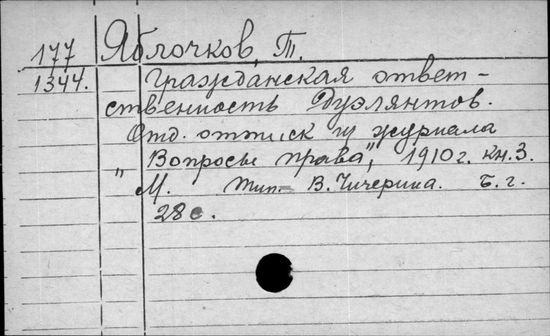 177 Яблочков, Т.
1344. Гражданская ответ-
ственность дуэлянтов.
Отд. оттиск из журнала
„Вопросы права", 1910 г. кн. 3.
М. Тип. В. Чичерина. Б. г.
28 с.